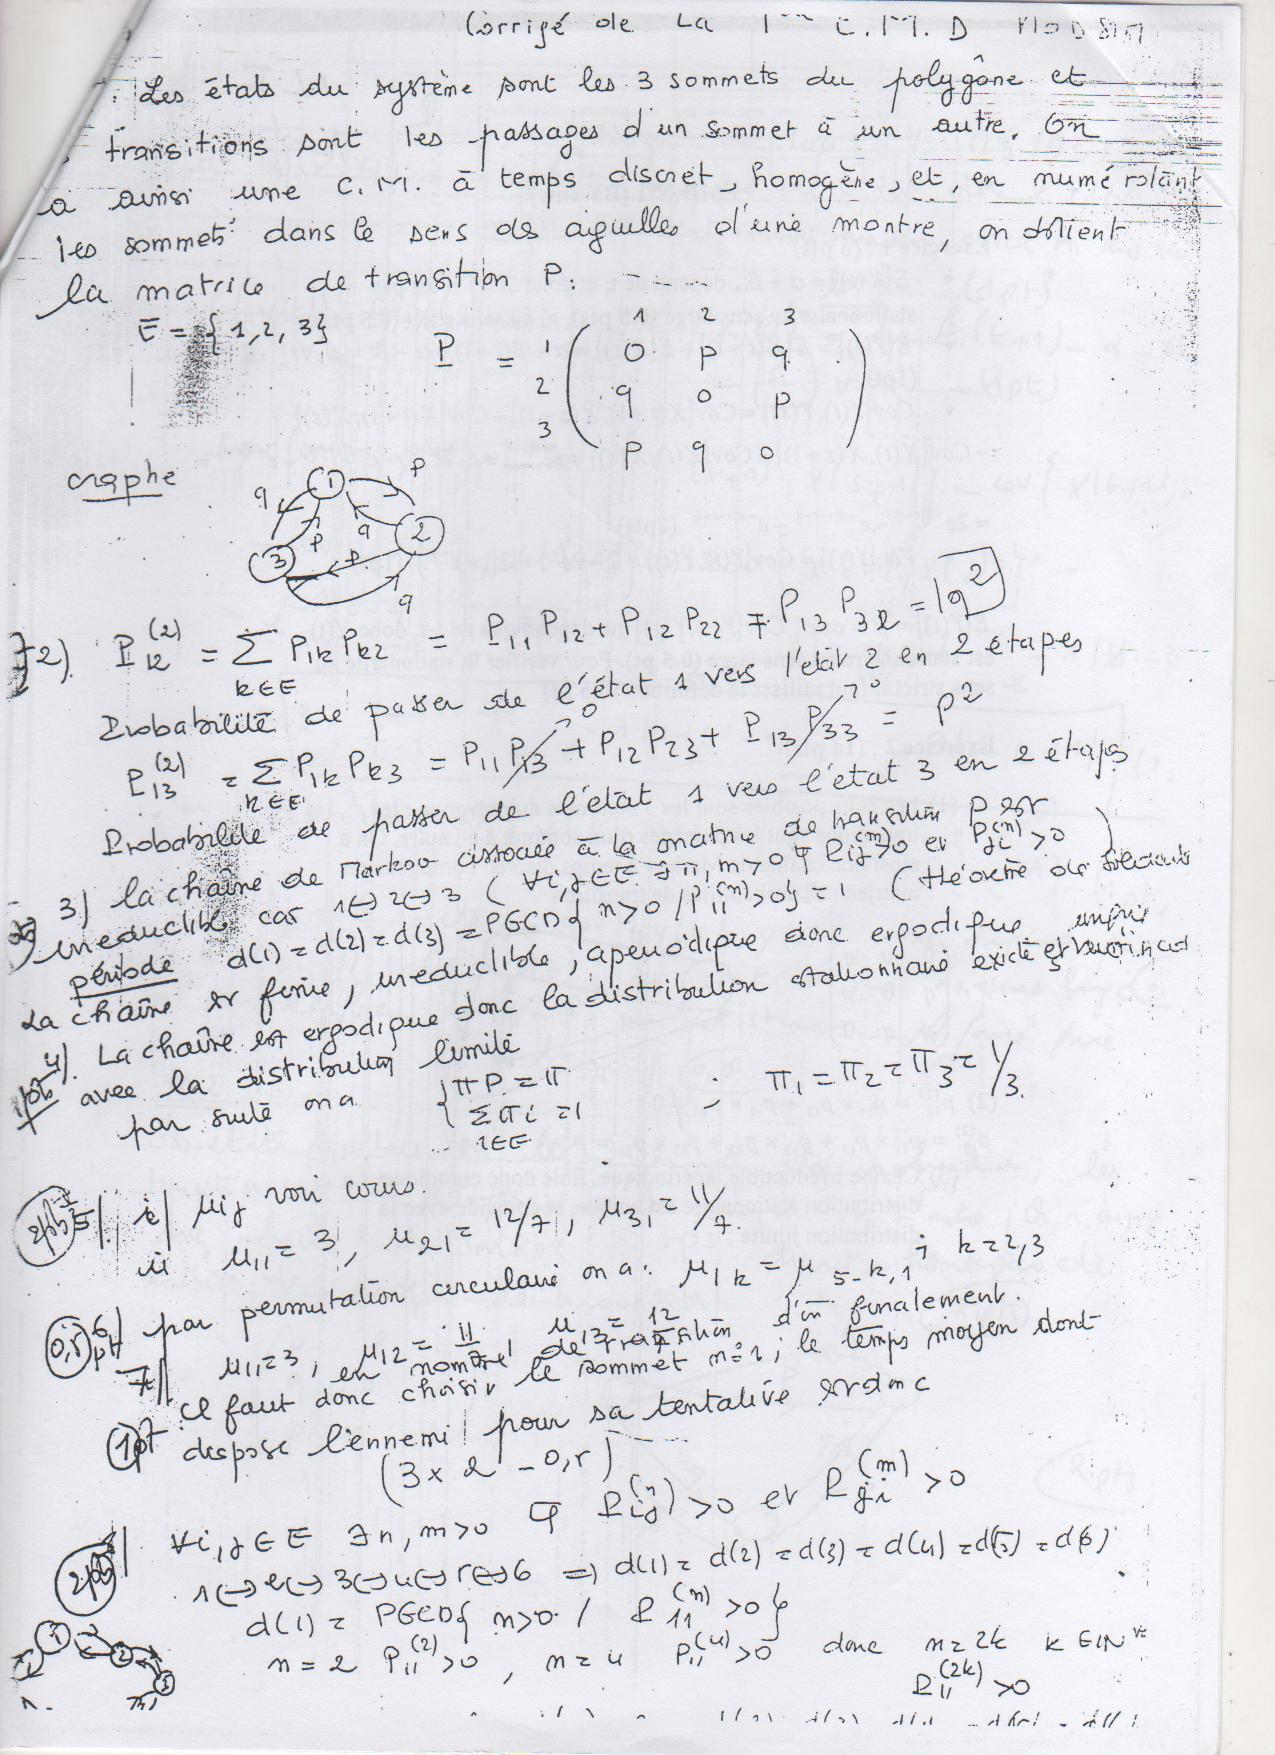 Corrigé de La 1ère C.M.D MODSIM
Les états du système sont les 3 sommets du polygône et
transitions sont les passages d'un sommet à un autre. On
a ainsi une C.M. à temps discret, homogène, et, en numérotant
les sommets dans le sens des aiguilles d'une montre, on obtient
la matrice de transition P:
E = {1,2,3}
1 2 3
P = 1 ( 0 p q )
2 ( q 0 p )
3 ( p q 0 )
Graphe
1 p
q p q 2
3 p
q
2) P12^(2) = Σ_{k∈E} P1k Pk2 = P11 P12 + P12 P22 + P13 P32 = q^2
Probabilité de passer de l'état 1 vers l'état 2 en 2 étapes
P13^(2) = Σ_{k∈E} P1k Pk3 = P11 P13 + P12 P23 + P13 P33 = p^2
Probabilité de passer de l'état 1 vers l'état 3 en 2 étapes
3) la chaîne de Markov associée à la matrice de transition P est
irréductible car 1↔2↔3 (∀i,j∈E ∃ n,m>0 tq Pij^(n)>0 et Pji^(m)>0)
période d(1)=d(2)=d(3)=PGCD{n>0/P11^(n)>0}=1 (théorème de
La chaîne est finie, irréductible, apériodique donc ergodique
4) La chaîne est ergodique donc la distribution stationnaire existe et
avec la distribution limite
par suite on a { πP = π ; π1 = π2 = π3 = 1/3.
Σ πi = 1
i∈E
2pts 5) i) μij voir cours.
ii μ11 = 3, μ21 = 12/7, μ31 = 11/7.
0,5 pt 6) par permutation circulaire on a: μ1k = μ5-k,1 ; k=2,3
μ11=3, μ12 = 11/7, μ13 = 12/7 d'où finalement.
7) en nombre de transition
il faut donc choisir le sommet n=1; le temps moyen dont
1pt dispose l'ennemi pour sa tentative est donc
(3 × 2 - 0,5)
2pts 8) ∀i,j∈E ∃n,m>0 tq Pij^(n)>0 et Pji^(m)>0
1↔2↔3↔4↔5↔6 ⇒ d(1)=d(2)=d(3)=d(4)=d(5)=d(6)
d(1) = PGCD{n>0 / P11^(n)>0}
n=2 P11^(2)>0, n=4 P11^(4)>0 donc n=2k k∈IN*
P11^(2k)>0
1 2 3